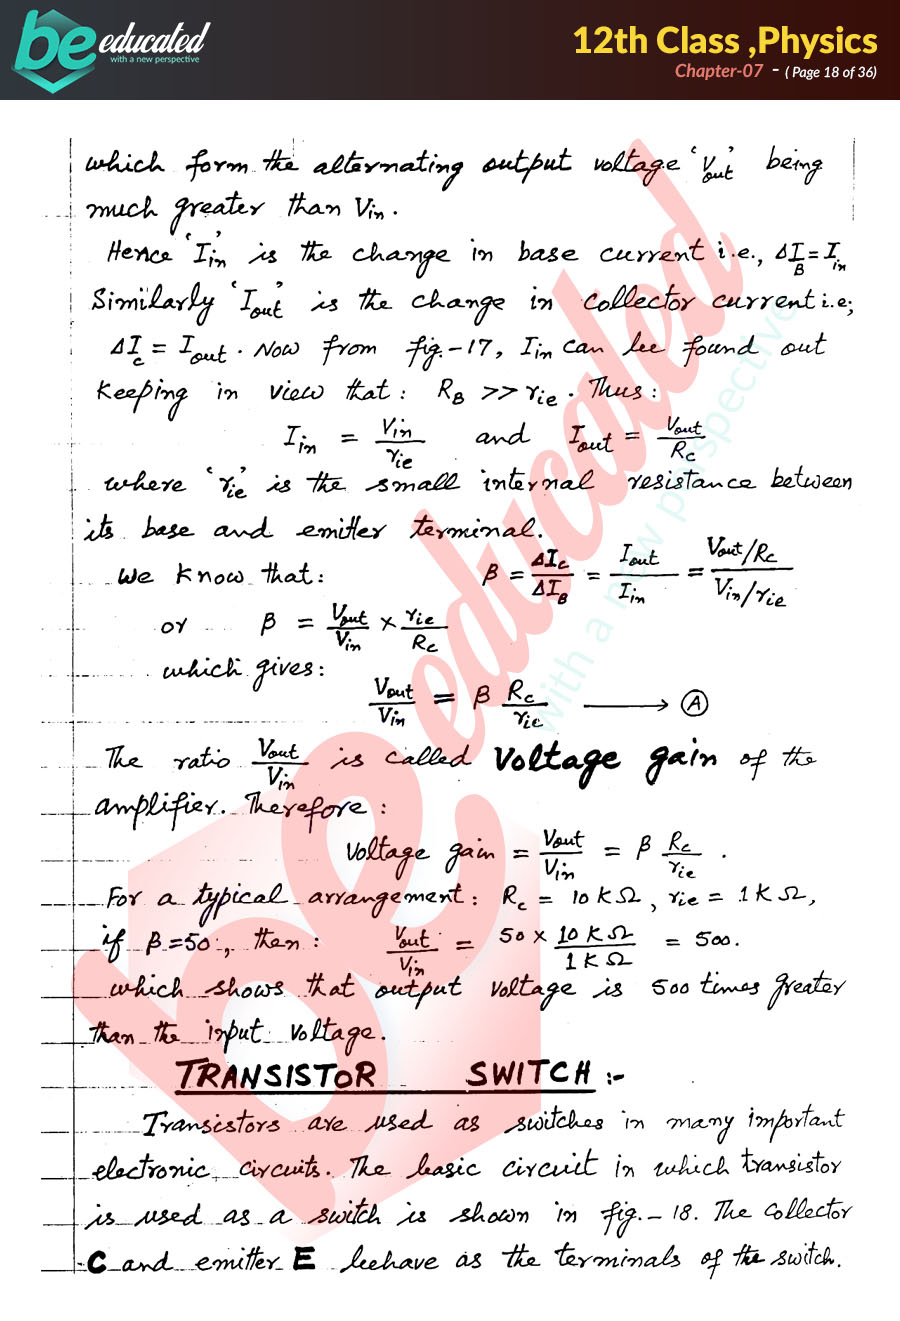 be educated
with a new perspective
12th Class ,Physics
Chapter-07 - ( Page 18 of 36)
which form the alternating output voltage 'Vout' being
much greater than Vin.
Hence 'Iin' is the change in base current i.e., ΔIB = Iin
Similarly 'Iout' is the change in collector current i.e;
ΔIc = Iout. Now from fig.-17, Iin can be found out
keeping in view that: RB >> rie. Thus:
Iin = Vin/rie and Iout = Vout/Rc
where 'rie' is the small internal resistance between
its base and emitter terminal.
We know that: β = ΔIc/ΔIB = Iout/Iin = (Vout/Rc)/(Vin/rie)
or β = Vout/Vin × rie/Rc
which gives:
Vout/Vin = β Rc/rie → (A)
The ratio Vout/Vin is called Voltage gain of the
amplifier. Therefore:
Voltage gain = Vout/Vin = β Rc/rie .
For a typical arrangement: Rc = 10 KΩ, rie = 1 K Ω,
if β = 50, then: Vout/Vin = 50 × 10 K Ω/1 K Ω = 500.
which shows that output voltage is 500 times greater
than the input voltage.
TRANSISTOR SWITCH :-
Transistors are used as switches in many important
electronic circuits. The basic circuit in which transistor
is used as a switch is shown in fig.-18. The collector
C and emitter E behave as the terminals of the switch.
be educated
with a new perspective